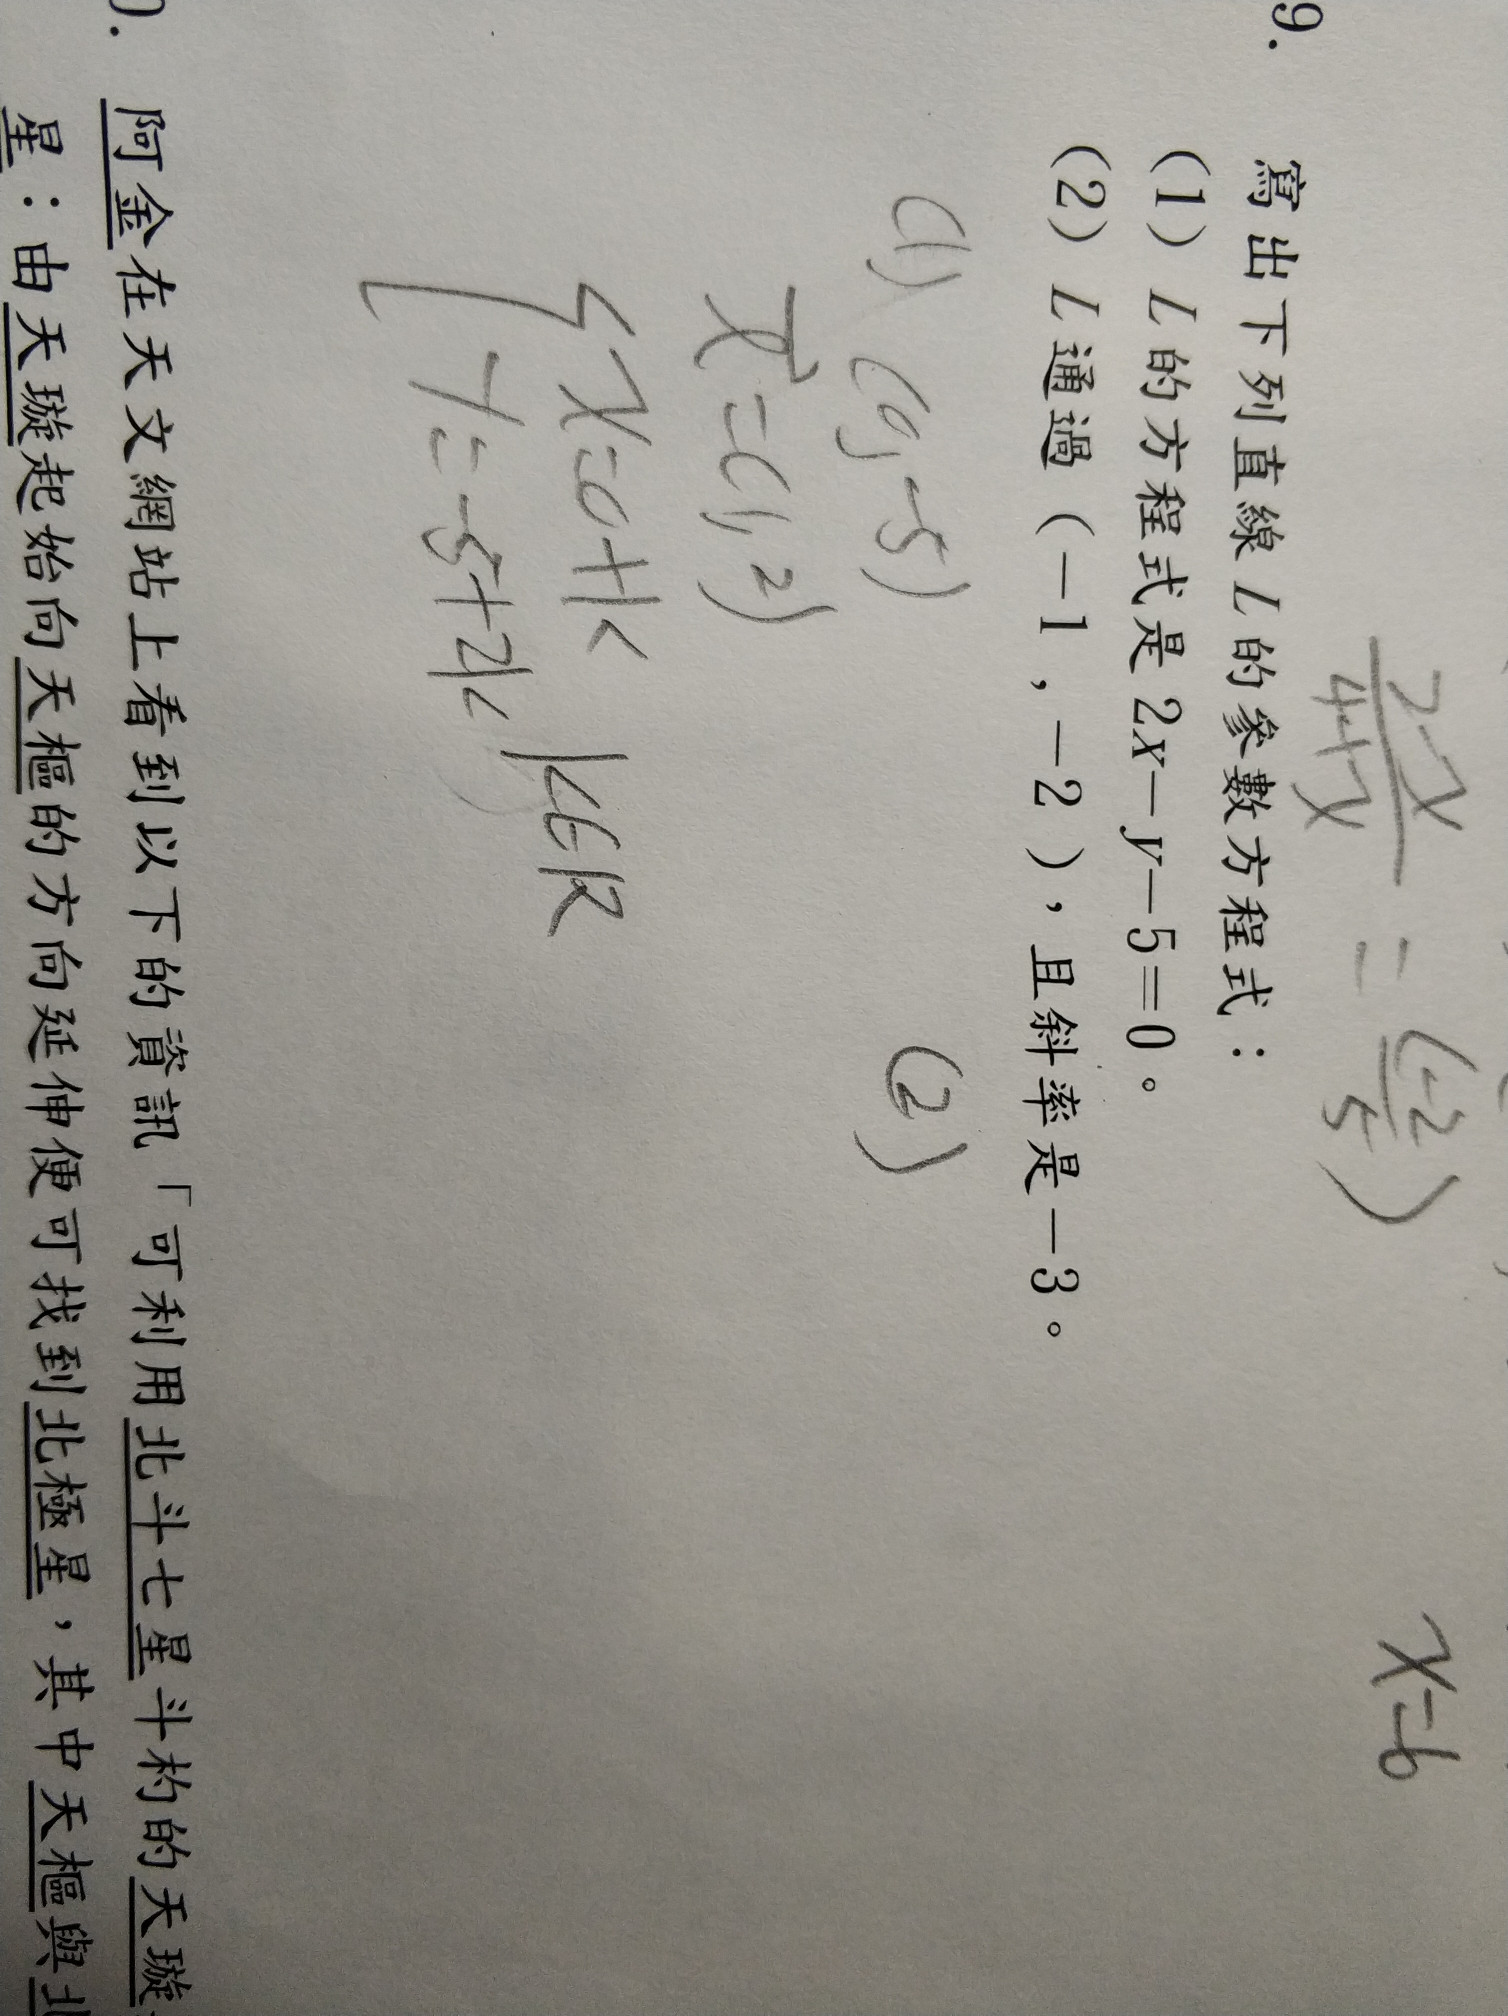 2-x/4+x = (-2/5)
x=6
9. 寫出下列直線L的參數方程式：
(1) L的方程式是2x－y－5=0。
(2) L通過(－1,－2)，且斜率是－3。
(1) (0,-5)
(2)
=(1,2)
{ x=0+k
y=-5+2k k∈R
0. 阿金在天文網站上看到以下的資訊「可利用北斗七星斗杓的天璇
星：由天璇起始向天樞的方向延伸便可找到北極星，其中天樞與北